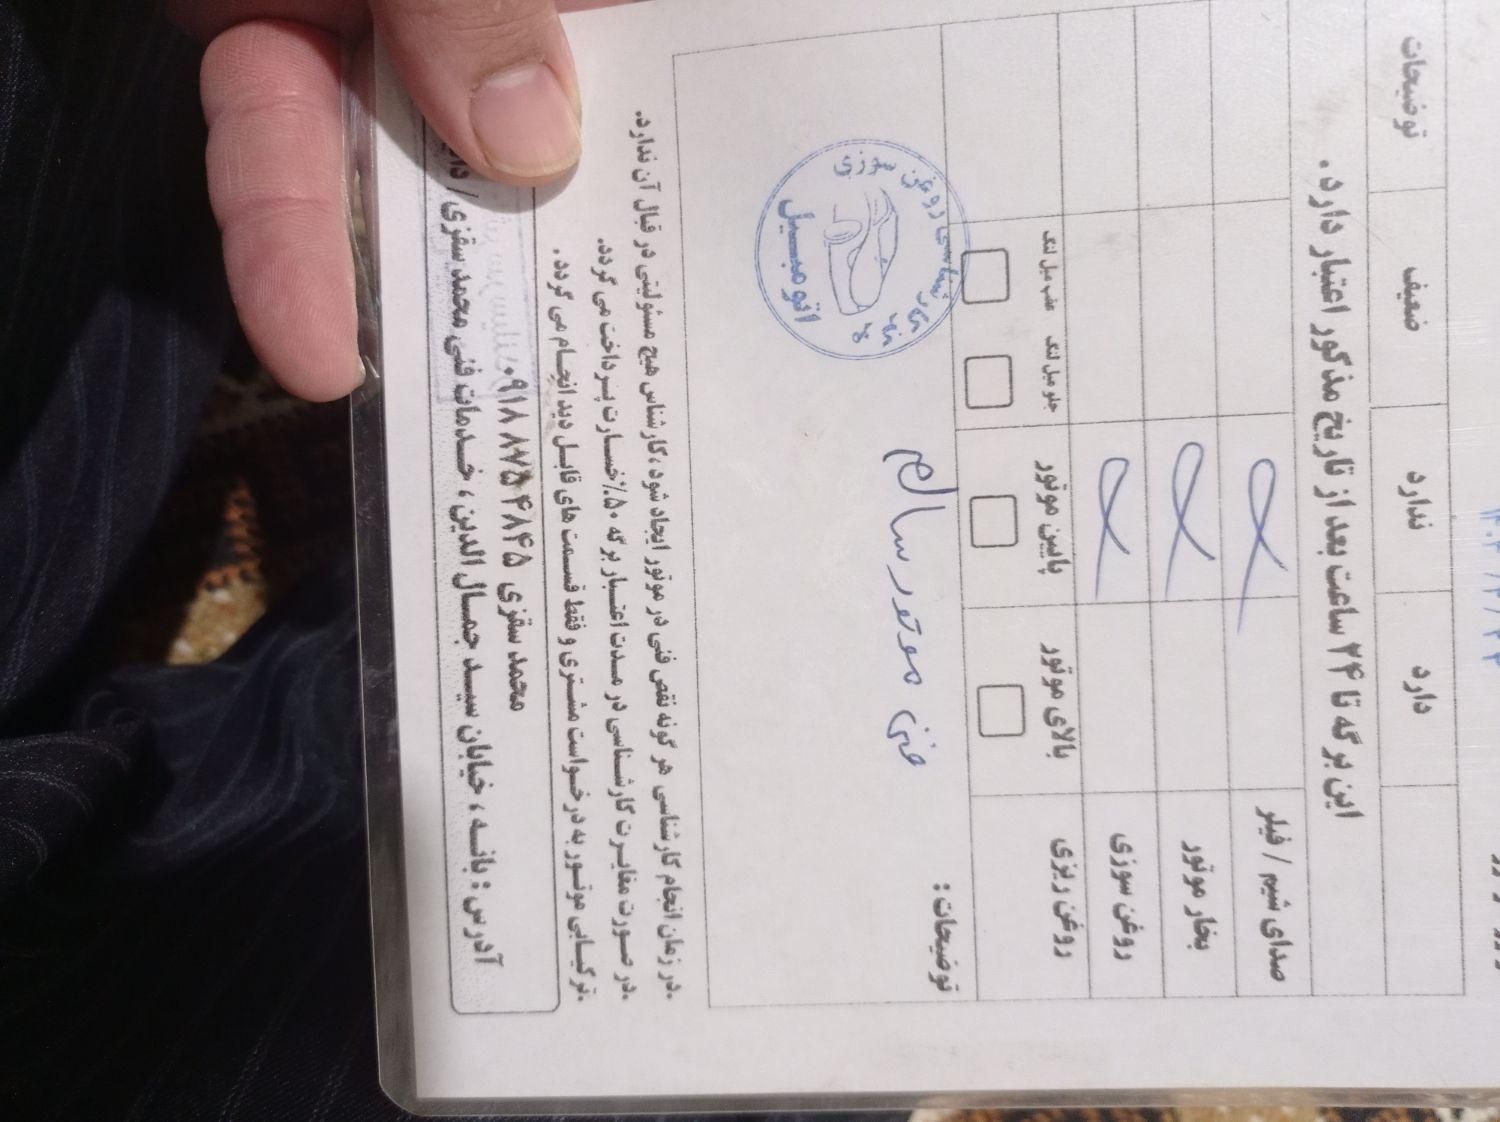 ۱۴۰۴/۴/۲۴
دارد ندارد ضعیف توضیحات
این برگه تا ۲۴ ساعت بعد از تاریخ مذکور اعتبار دارد.
صدای شیم / فیلر
بخار موتور
روغن سوزی
روغن ریزی بالای موتور پایین موتور جلو میل لنگ عقب میل لنگ
توضیحات:
فنی موتور سالم
کارشناسی روغن سوزی
اتومبیل
.در زمان انجام کارشناسی هر گونه نقص فنی در موتور ایجاد شود، کارشناس هیچ مسئولیتی در قبال آن ندارد.
.در صورت مغایرت کارشناسی در مدت اعتبار برگه ۵۰٪ خسارت پرداخت می گردد.
.ترکیابی موتور به درخواست مشتری و فقط قسمت های قابل دید انجام می گردد.
محمد سقزی ۰۹۱۸ ۸۷۵ ۴۸۴۵
آدرس: بانه، خیابان سید جمال الدین، خدمات فنی محمد سقزی /